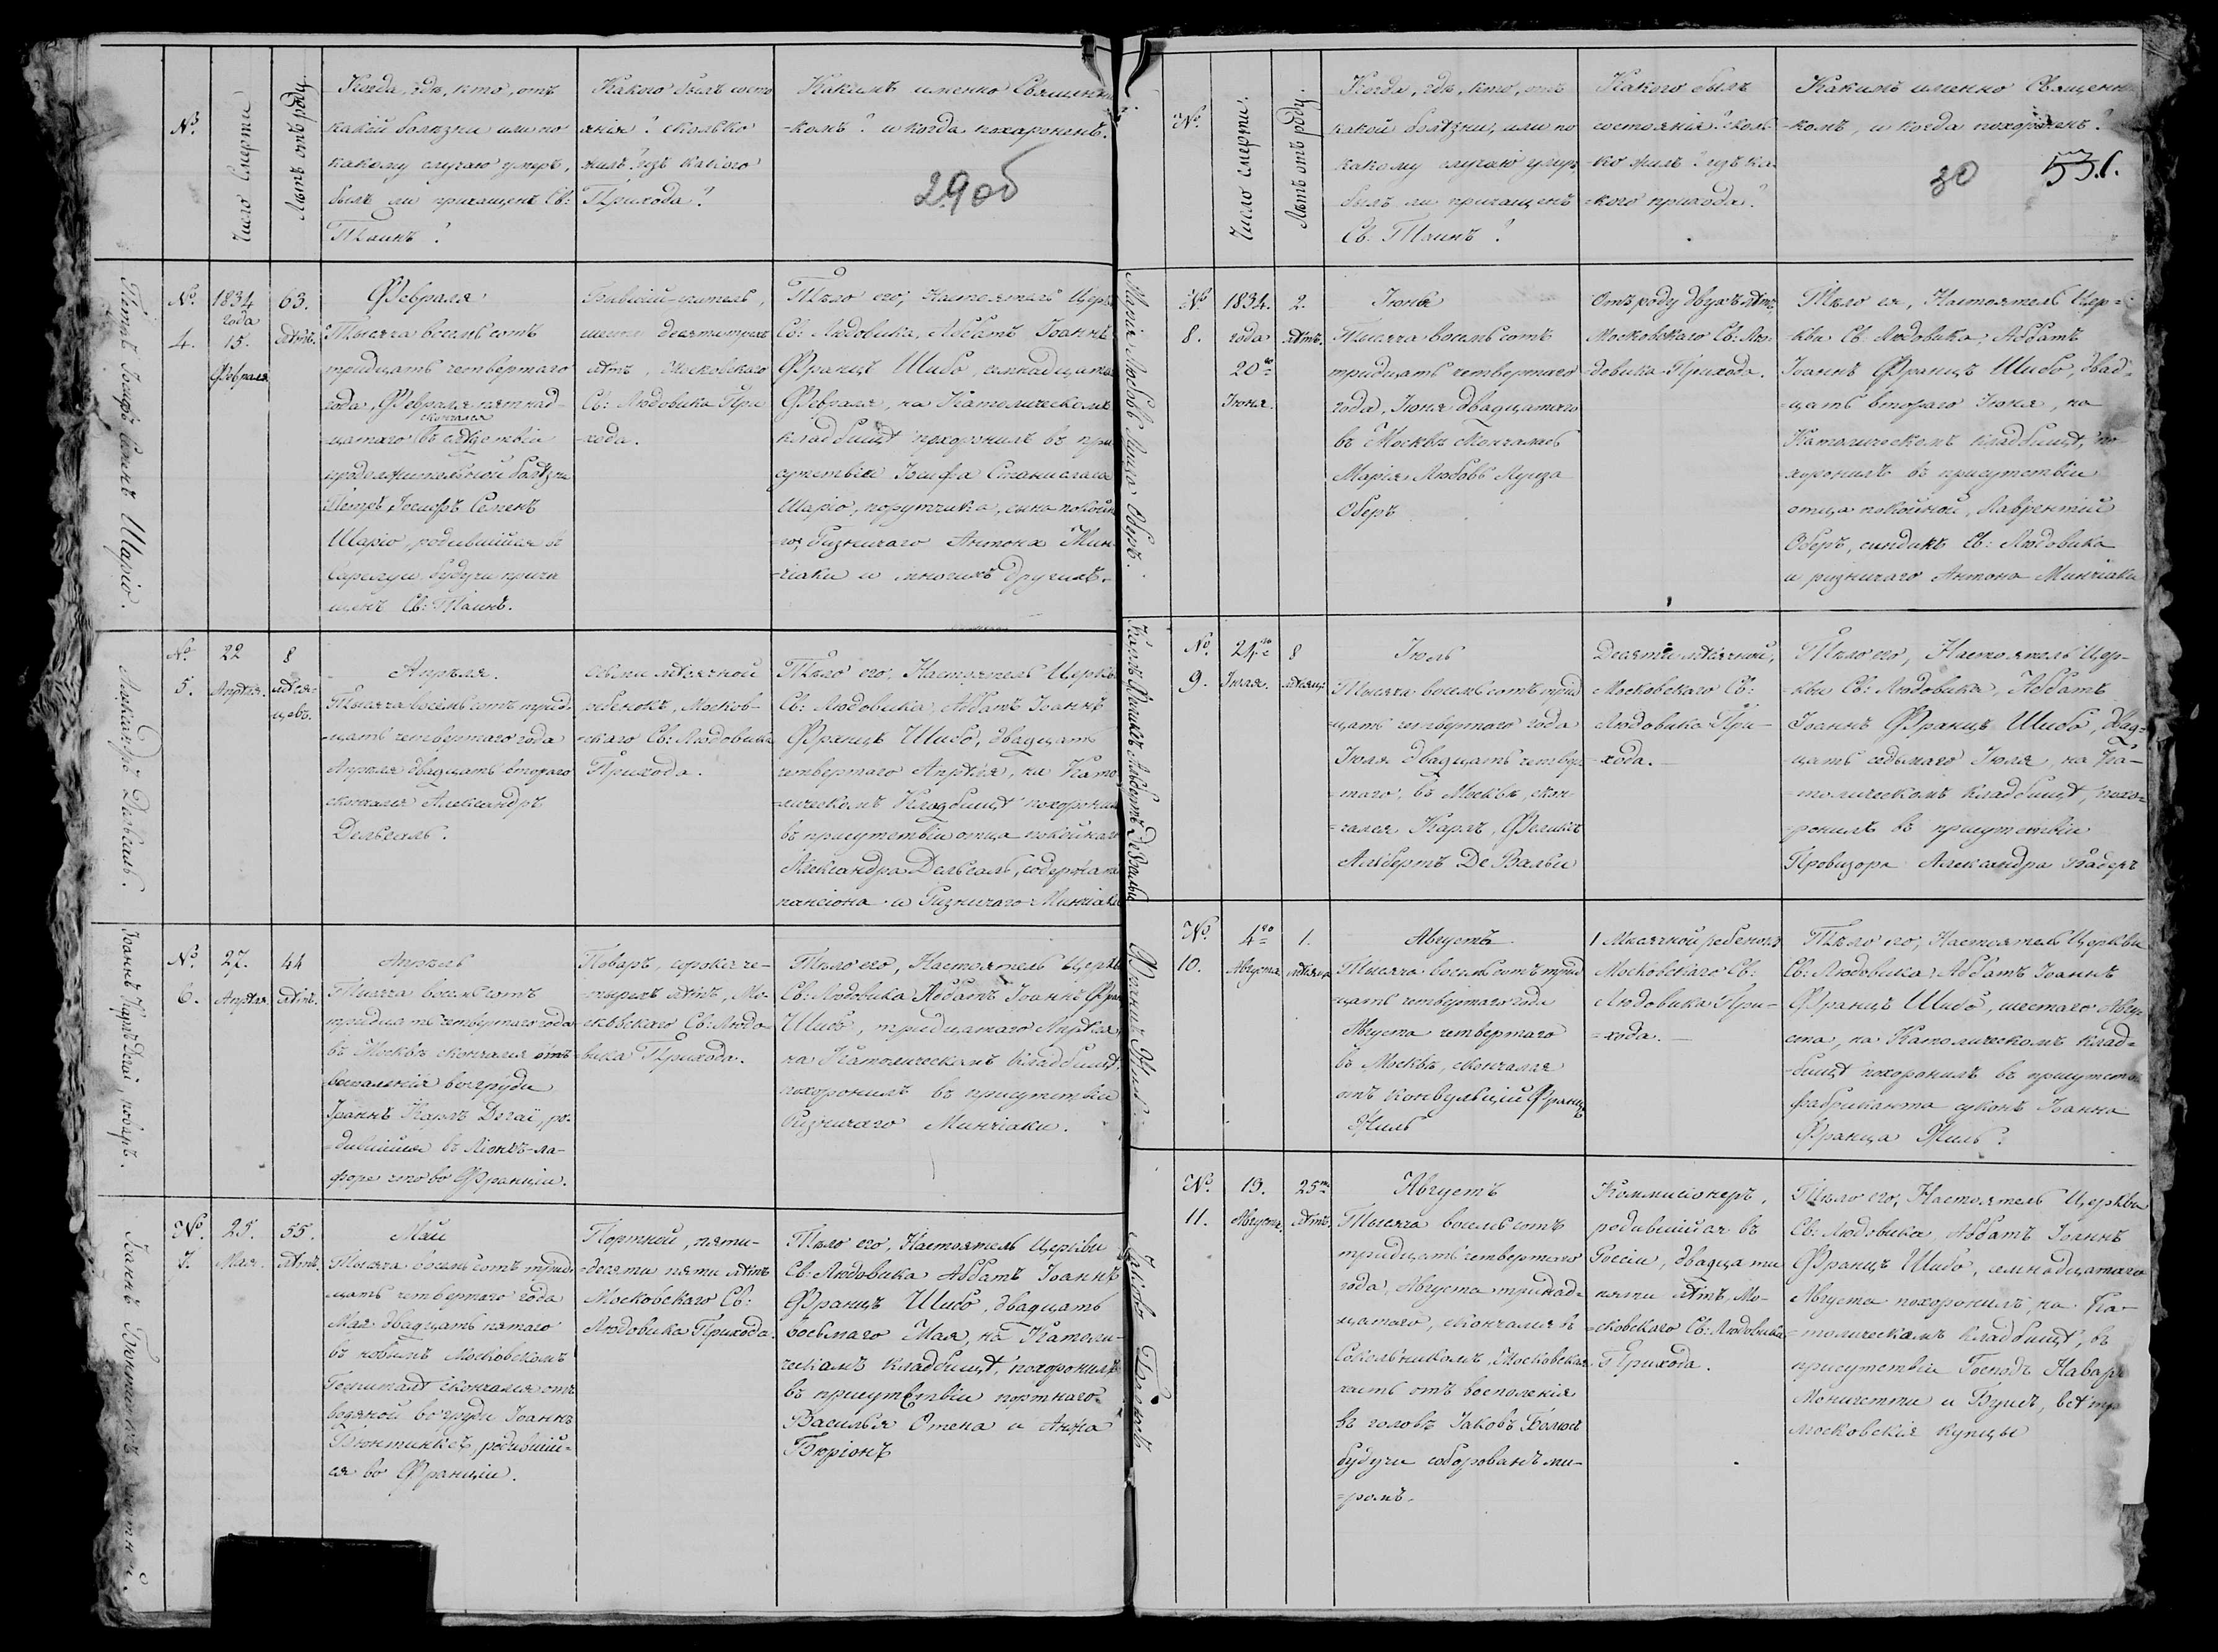 №
Число Смерти
Лѣтъ отъ роду
Когда, гдѣ, кто, отъ
какой болѣзни или по
какому случаю умеръ,
былъ ли пріащенъ Св:
Таинъ?
Какого былъ состо
янія? сколько
жилъ? изъ какого
Прихода?
Какимъ именно Священни
=комъ? и когда похороненъ.
29об
№
4.
1834
года
15.
Февраля
63.
лѣтъ.
Февраля
Тысяча восемь сотъ
тридцать четвертаго
года, Февраля пятнад
=цатаго скончался въ слѣдствіи
продолжительной болѣзни
Петръ Іосифъ Семенъ
Шаріо, родившійся въ
будучи прича
щенъ Св: Таинъ.
Бывшій учитель,
шести десяти трехъ
лѣтъ, Московскаго
Св: Людовика При
=хода.
Тѣло его, Настоятель Церкви
Св: Людовика, Аббатъ Іоаннъ
Францъ Шибо, семнадцатаго
Февраля, на Католическомъ
кладбищѣ похоронилъ въ при
сутствіи Іосифа Станислава
Шаріо, порутчика, сына покойна
=го, ризничаго Антона Мин
=чіаки и многихъ другихъ.
№
5.
22
Апрѣля.
8
мѣся=
цевъ.
Апрѣля.
Тысяча восемь сотъ трид=
=цать четвертаго года
Апрѣля двадцать втораго
скончался Александръ
Дельсаль.
Осьми мѣсячной
ребенокъ, Москов-
=скаго Св: Людовика
Прихода.
Тѣло его, Настоятель Церкви
Св: Людовика, Аббатъ Іоаннъ
Францъ Шибо, двадцать
четвертаго Апрѣля, на Като
=лическомъ Кладбищѣ похоронилъ
въ присутствіи отца покойнаго
Александра Дельсаль, содержателя
пансіона и Ризничаго Минчіаки
№
6.
27.
Апрѣля.
44
лѣтъ.
Апрѣль
Тысяча восемь сотъ
тридцать четвертаго года
въ Москвѣ скончался отъ
воспаленія въ груди
Іоаннъ Карлъ Дегай, ро=
=дившійся въ
во Франціи.
Поваръ, сорока че-
=тырехъ лѣтъ, Мо-
сковскаго Св: Людо-
=вика Прихода.
Тѣло его, Настоятель Церкви
Св: Людовика Аббатъ Іоаннъ Францъ
Шибо, тридцатаго Апрѣля,
на Католическомъ кладбищѣ
похоронилъ въ присутствіи
Ризничаго Минчіаки.
№
7.
25.
Мая.
55.
лѣтъ.
Май
Тысяча восемь сотъ трид=
цать четвертаго года
Мая двадцать пятаго
въ новомъ Московскомъ
Гошпиталѣ скончался отъ
водяной въ груди Іоаннъ
родившій=
ся во Франціи.
Портной, пяти-
=десяти пяти лѣтъ
Московскаго Св:
Людовика Прихода.
Тѣло его, Настоятель Церкви
Св: Людовика Аббатъ Іоаннъ
Францъ Шибо, двадцать
восьмаго Мая, на Католи-
ческомъ кладбищѣ, похоронилъ
въ присутствіи портнаго
Василья Отена и
Бюріонъ
Петръ Іосифъ Семенъ Шаріо.
Александръ Дельсаль.
Іоаннъ Карлъ Дегай, поваръ.
№
Число Смерти.
Лѣтъ отъ роду.
Когда, гдѣ, кто, отъ
какой болѣзни, или по
какому случаю умеръ,
былъ ли причащенъ
Св. Таинъ?
Какого былъ
состоянія? сколь-
=ко жилъ? изъ ка-
=кого прихода?
Какимъ именно Священни
=комъ, и когда похороненъ?
30
№
8.
1834.
года
20го
Іюня.
2.
лѣтъ.
Іюнь
Тысяча восемь сотъ
тридцать четвертаго
года, Іюня двадцатаго
въ Москвѣ скончалась
Марія Любовь Луиза
Оберъ
Отъ роду двухъ лѣтъ,
Московскаго Св: Лю-
=довика Прихода.
Тѣло ея, Настоятель Цер=
=кви Св: Людовика, Аббатъ
Іоаннъ Францъ Шибо, двад=
=цать втораго Іюня, на
Католическомъ кладбищѣ, по-
хоронилъ въ присутствіи
отца покойной, Лаврентій
Оберъ, синдикъ Св: Людовика
и ризничаго Антона Минчіаки
№
9.
24го
Іюля.
8
мѣсяц
Іюль
Тысяча восемь сотъ трид
=цать четвертаго года
Іюля двадцать четвер=
=таго, въ Москвѣ, скон-
=чался Карлъ, Феликсъ
Албертъ Де Вальи
Десяти мѣсячной,
Московскаго Св:
Людовика При-
=хода.
Тѣло его, Настоятель Цер-
=кви Св: Людовика, Аббатъ
Іоаннъ Францъ Шибо, двад=
=цать седьмаго Іюля, на Ка-
=толическомъ кладбищѣ, похо=
ронилъ въ присутствіи
Провизора Александра
№
10.
4го
Августа
1.
мѣсяца
Августъ
Тысяча восемь сотъ трид
=цать четвертаго года
Августа четвертаго
въ Москвѣ, скончался
отъ конвульсіи Францъ
Жиль
1 Мѣсячной ребенокъ
Московскаго Св:
Людовика При-
=хода.
Тѣло его, Настоятель Церкви
Св: Людовика, Аббатъ Іоаннъ
Францъ Шибо, шестаго Авгу
ста, на Католическомъ клад=
=бищѣ похоронилъ въ присутствіи
фабриканта суконъ Іоанна
Франца Жиль.
№
11.
13.
Августа.
25ти
лѣтъ.
Августъ
Тысяча восемь сотъ
тридцать четвертаго
года, Августа тринад=
цатаго, скончался въ
Сокольникахъ, Московская
часть отъ воспаленія
въ головѣ Іаковъ
будучи соборованъ ми-
=ромъ.
Коммисіонеръ,
родившійся въ
Россіи, двадцати
пяти лѣтъ, Мо-
=сковскаго Св: Людовика
Прихода.
Тѣло его, Настоятель Церкви
Св: Людовика, Аббатъ Іоаннъ
Францъ Шибо, семнадцатаго
Августа похоронилъ, на Ка-
=толическомъ кладбищѣ, въ
присутствіи Господъ
и всѣ три
Московскія купцы
Марія Любовь Луиза Оберъ.
Карлъ Феликсъ Албертъ Де Вальи
Францъ Жиль.